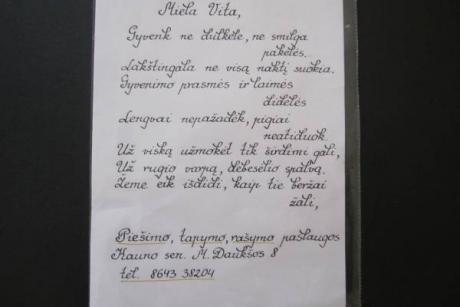 Miela Vita,
Gyvenk ne dulkėle, ne smilga
pakelės.
Lakštingala ne visą naktį suokia.
Gyvenimo prasmės ir laimės
didelės
Lengvai nepažadėk, pigiai
neatiduok.
Už viską užmokėt tik širdimi gali,
Už rugio varpą, debesėlio spalvą.
Žeme eik išdidi, kaip tie beržai
žali,
Piešimo, tapymo, rašymo paslaugos
Kauno sen. M. Daukšos 8
tel. 8643 38204